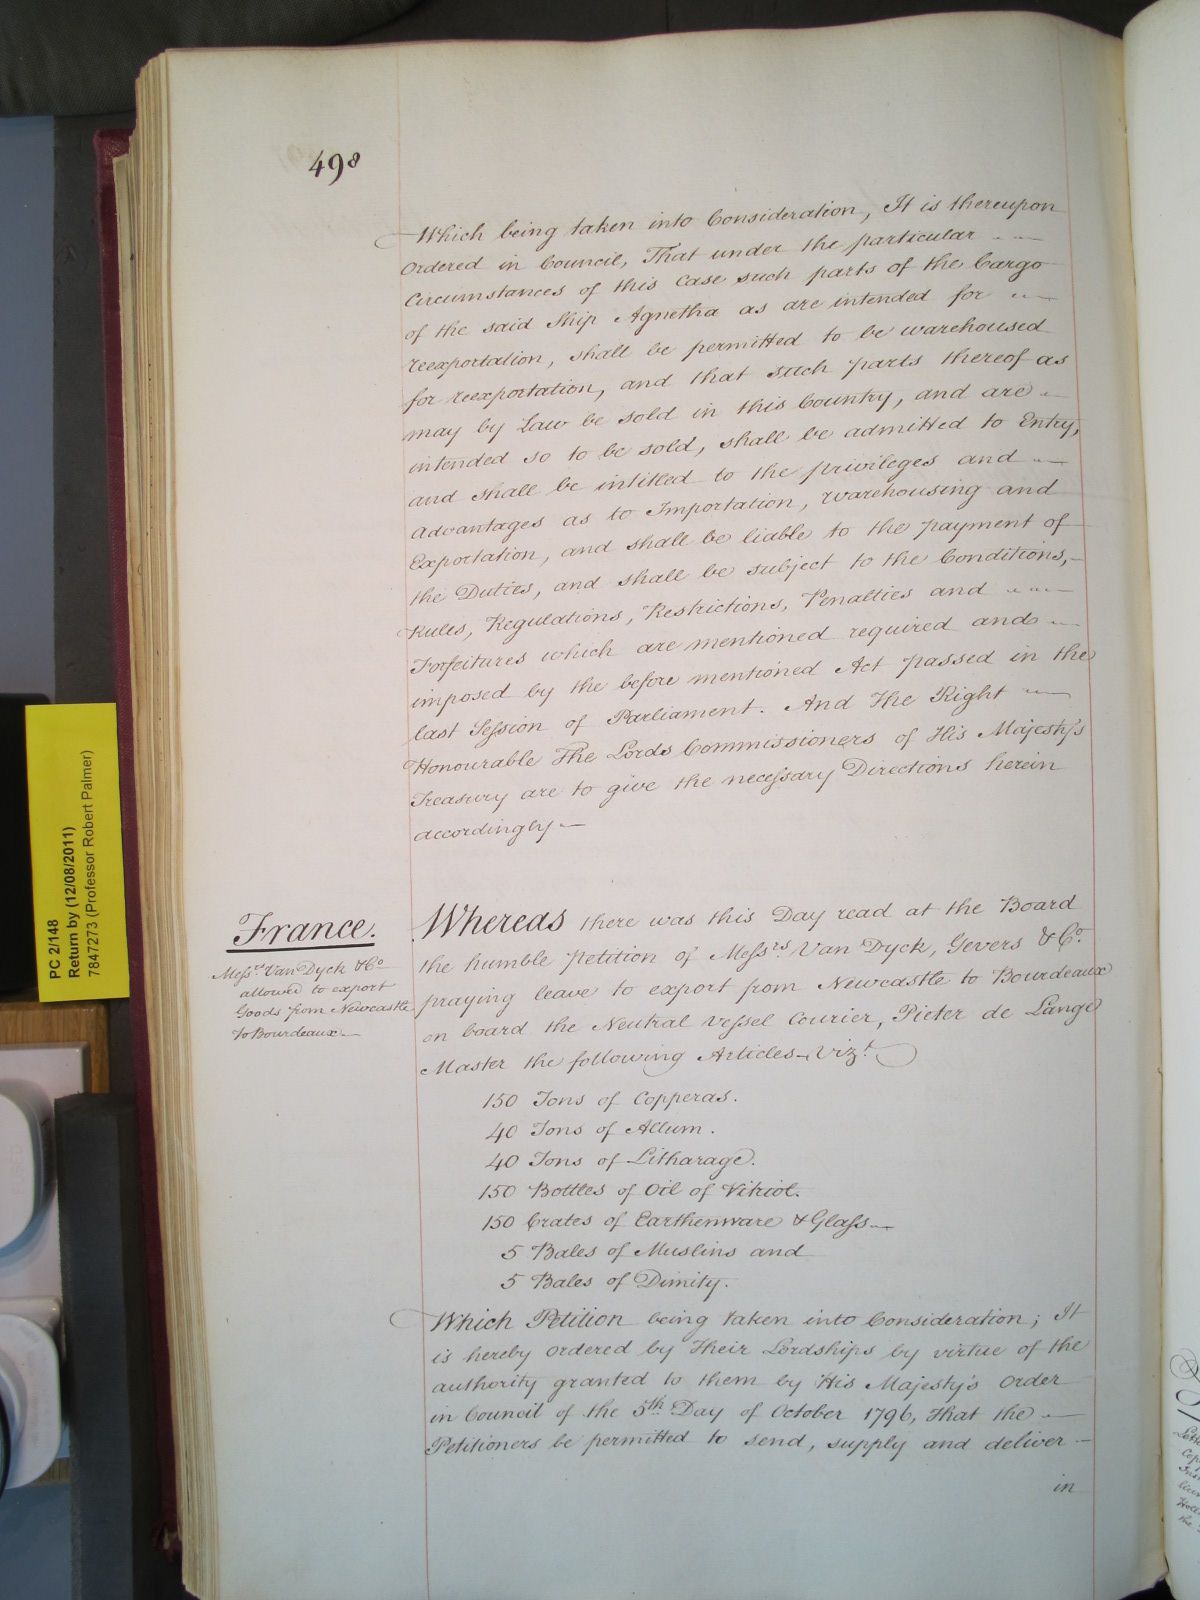 498
Which being taken into Consideration, It is thereupon
Ordered in Council, That under the particular
Circumstances of this Case such parts of the Cargo
of the said Ship Agnetha as are intended for
reexportation, shall be permitted to be warehoused
for reexportation, and that such parts thereof as
may by Law be sold in this Country, and are
intended so to be sold, shall be admitted to Entry,
and shall be intitled to the privileges and
advantages as to Importation, warehousing and
Exportation, and shall be liable to the payment of
the Duties, and shall be subject to the Conditions,
Rules, Regulations, Restrictions, Penalties and
Forfeitures which are mentioned required and
imposed by the before mentioned Act passed in the
last Session of Parliament. And The Right
Honourable The Lords Commissioners of His Majesty's
Treasury are to give the necessary Directions herein
accordingly —
France.
Messrs. Van Dyck & Co
allowed to export
Goods from Newcastle
to Bourdeaux.
Whereas there was this Day read at the Board
the humble Petition of Messrs. Van Dyck, Gevers & Co.
praying leave to export from Newcastle to Bourdeaux
on board the Neutral Vessel Courier, Pieter de Lange
Master the following Articles, Vizt.
150 Tons of Copperas.
40 Tons of Allum.
40 Tons of Litharage.
150 Bottles of Oil of Vitriol.
150 Crates of Earthenware & Glass
5 Bales of Muslins and
5 Bales of Dimity.
Which Petition being taken into Consideration; It
is hereby ordered by Their Lordships by virtue of the
authority granted to them by His Majesty's Order
in Council of the 5th Day of October 1796, That the
Petitioners be permitted to send, supply and deliver
in
PC 2/148
Return by (12/08/2011)
7847273 (Professor Robert Palmer)